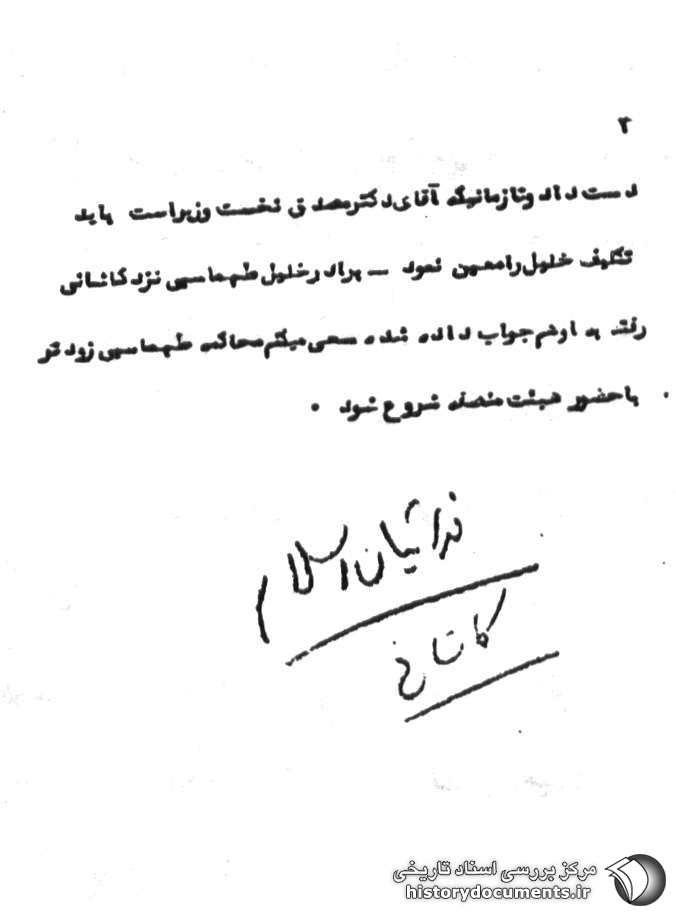 ۲
دست داد وتازمانیکه آقای دکترمصدق نخست وزیراست باید
تکلیف خلیل رامعین نمود – برادرخلیل طهماسبی نزد کاشانی
رفته به اوهم جواب داده شده سعی میکنم محاکمه طهماسبی زودتر
باحضور هیئت منصفه شروع شود .
فدائیان اسلام
کاشانی
مرکز بررسی اسناد تاریخی
historydocuments.ir